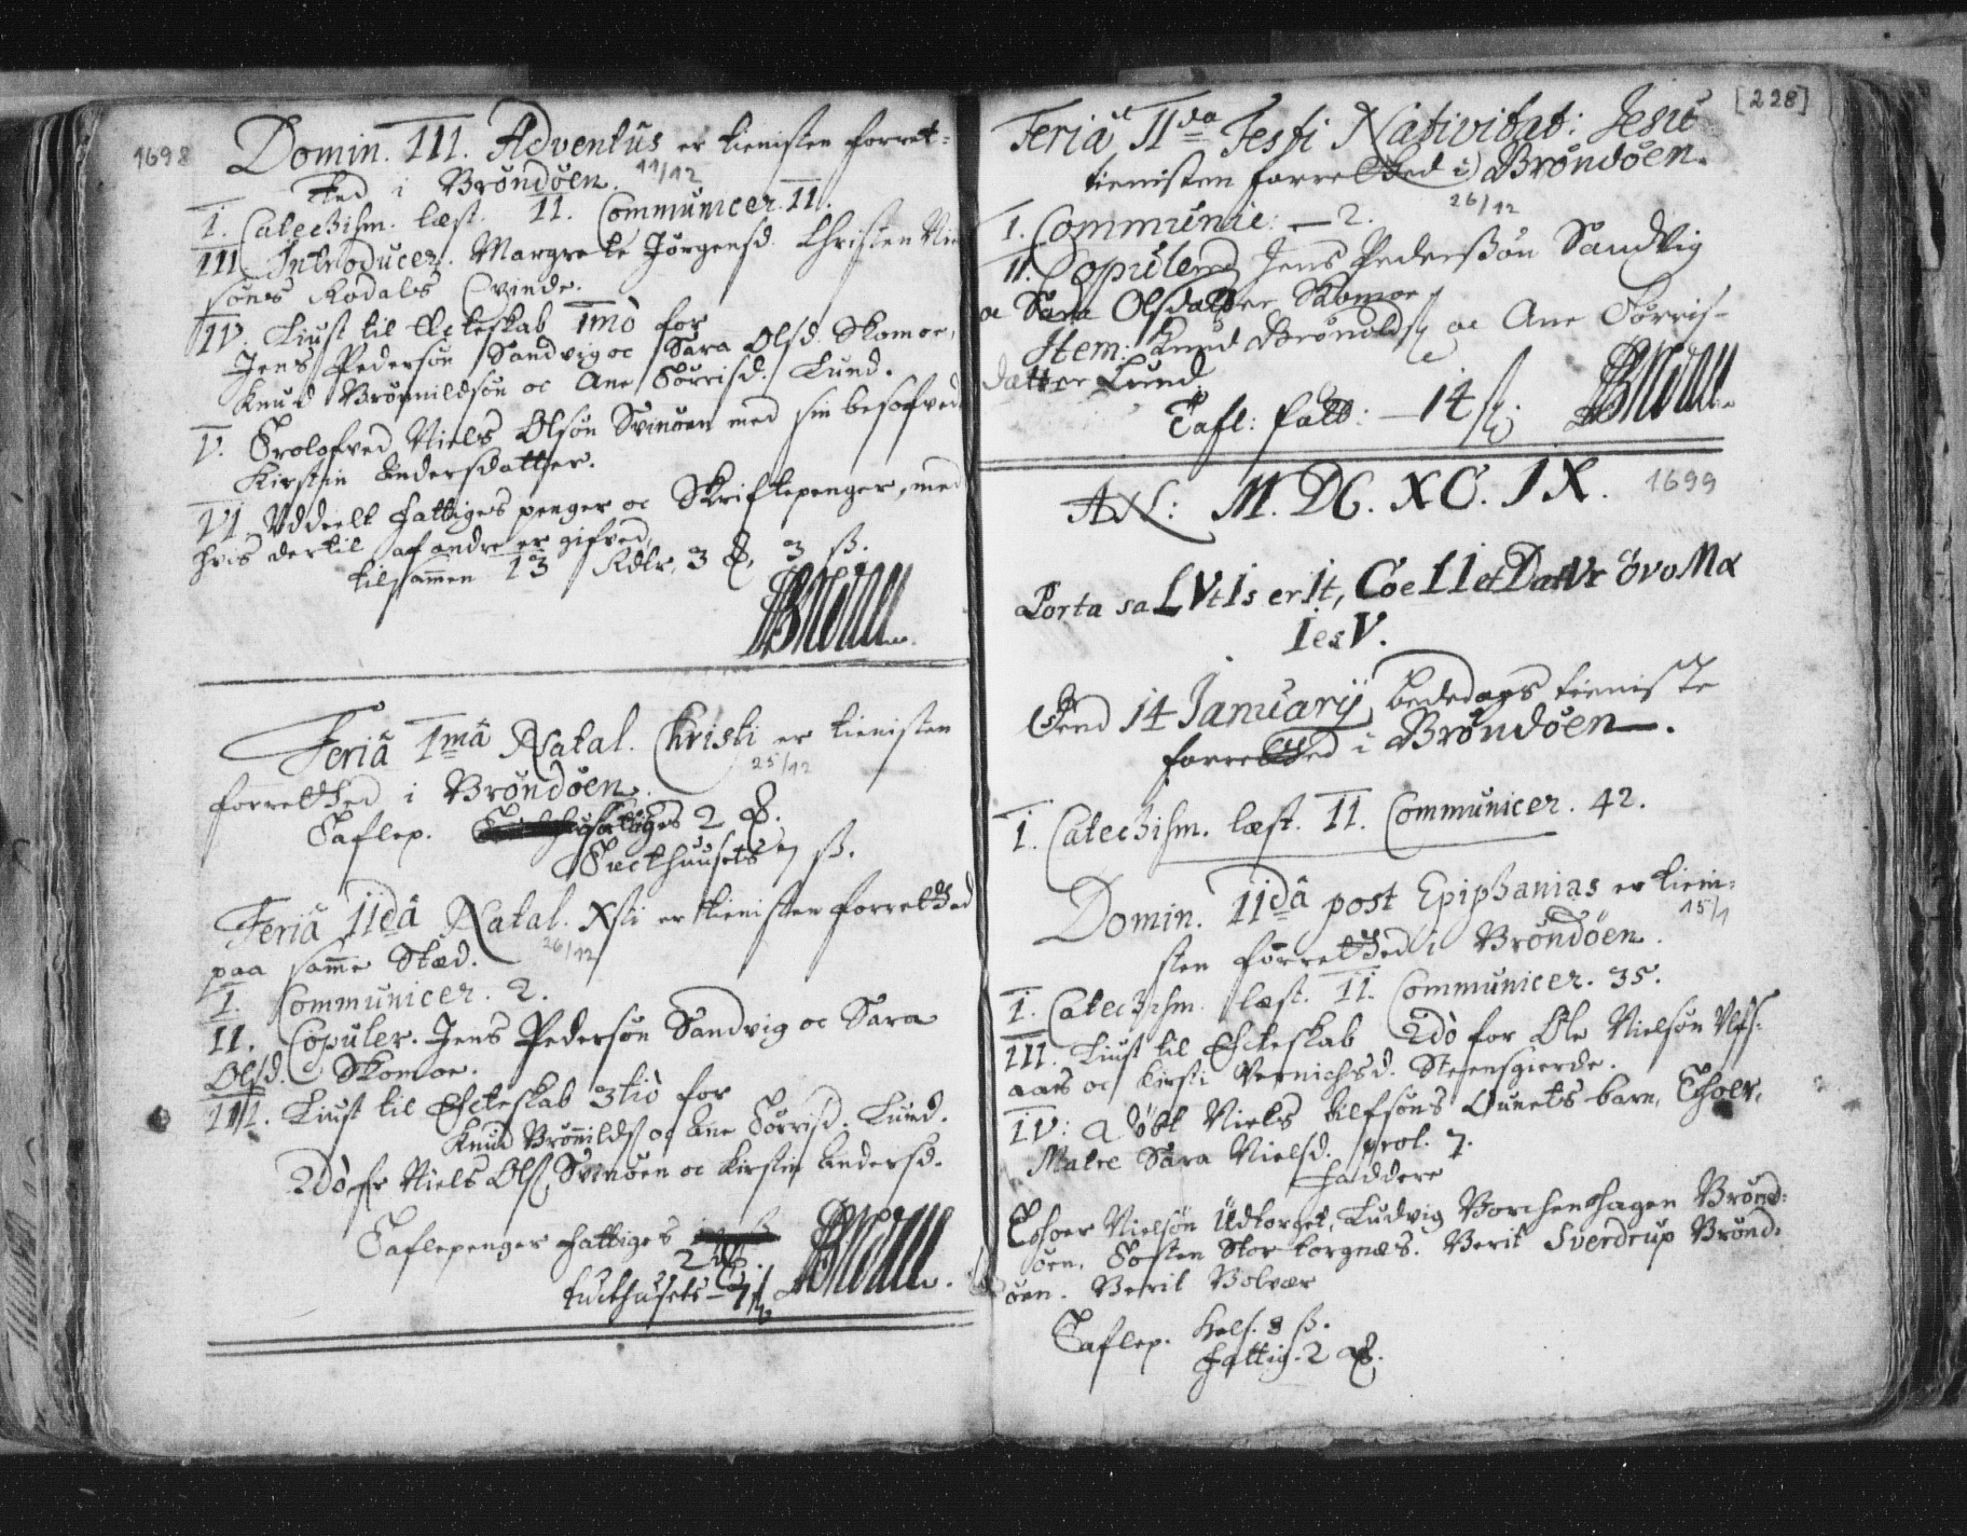 1698
Domin. III. Adventûs er tienisten forret-
ted i Brøndøen. 11/12
I. Catechism. læst. II. Communicer. 11.
III Introducer. Margrete Jørgensd. Christen Nie
søns Rodals Qvinde.
IV. Liust til Ecteskab 1mò for
Jens Pedersøn Sandvig oc Sara Olsd. Skomoe,
Knud Brønnildsøn oc Ane Torrisd. Lund.
V. Trolofved Niels Olsøn Svinøen med sin besofved
Kirstin Andersdatter.
VI. Vddeelt fattiges penger oc Skriftepenger, med
hvis dertil af andre er gifved,
tilsammen 13 Rdlr, 3 ß.
Feriâ 1mâ Natal. Christi er tienisten
25/12
forretthed i Brøndøen.
Taflep. 2
Tucthuusets 7 ß.
Feriâ IIdâ Natal. Xsti er tienisten forretthed
paa samme Stæd. 26/12
I. Communicer. 2.
II. Copuler. Jens Pedersøn Sandvig oc Sara
Olsd. Skomoe.
III. Liust til Ecteskab 3tiò for
Knud Brønnilds oc Ane Torrisd. Lund.
2dò for Niels Ols. Svinøen oc Kirstin Andersd.
Taflepenger fattiges
2
tucthusets - 7
[228]
Feriâ IIda Festi Nativitat: Jesu
tienisten forretthed i Brøndøen.
26/12
I. Communic: — 2.
II. Copulered Jens Pederssøn Sandvig
oc Sara Olsdatter Skomoe
Item: Knud Brønilds. oc Ane Torris-
datter Lund
Tafl: fatt: — 14
AN: M. DC. XC. IX. 1699
Porta saLVtIs erIt, CoeLI et DatVr ovoMα
IesV.
Dend 14 Januarij, bededags tieniste
forretthed i Brøndøen.
I. Catechism. læst. II. Communicer. 42.
Domin. IIdâ post Epiphanias er tieni-
15/1
sten forretthed i Brøndøen.
I. Catechism. læst. II. Communicer. 35.
III. Liust til Ecteskab 2dò for Ole Nielsøn Vlfs-
aas oc Kirsti Vernichsd. Steensgierde.
IV: Døbt Niels Alfsøns barn,
Matre Sara Nielsd. prol. 7.
Faddere
Nielsøn Udtorget, Ludvig Borchenhagen Brønd-
øen. Torsten Stortorgnæs. Berit Sverdrup Brønd-
øen. Berit Bolvær
Taflep. 8 ß.
fattig. 2